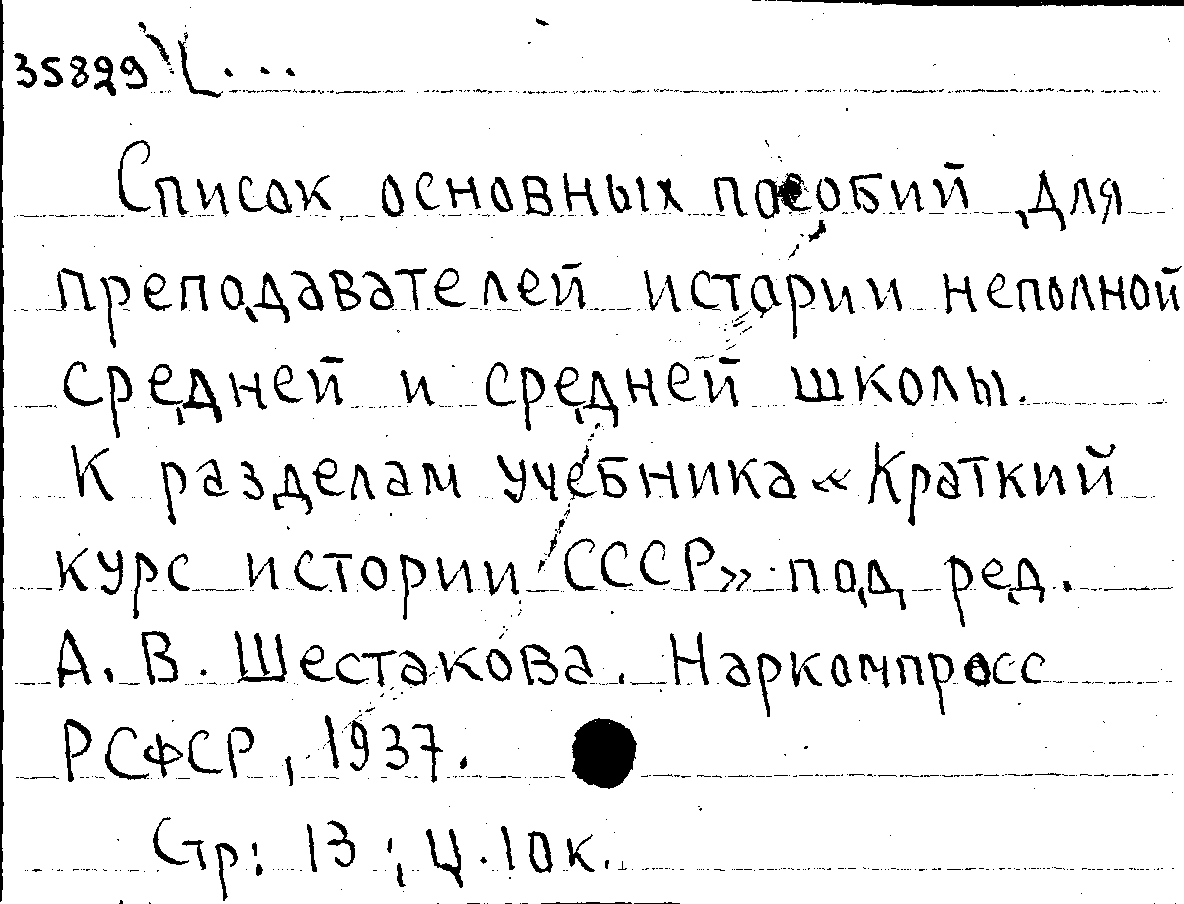 35829 \[...
Список основных пособий для
преподавателей истории неполной
средней и средней школы.
К разделам учебника «Краткий
курс истории СССР» под ред.
А. В. Шестакова. Наркомпросс
РСФСР, 1937.
Стр: 13; Ц. 10 к.